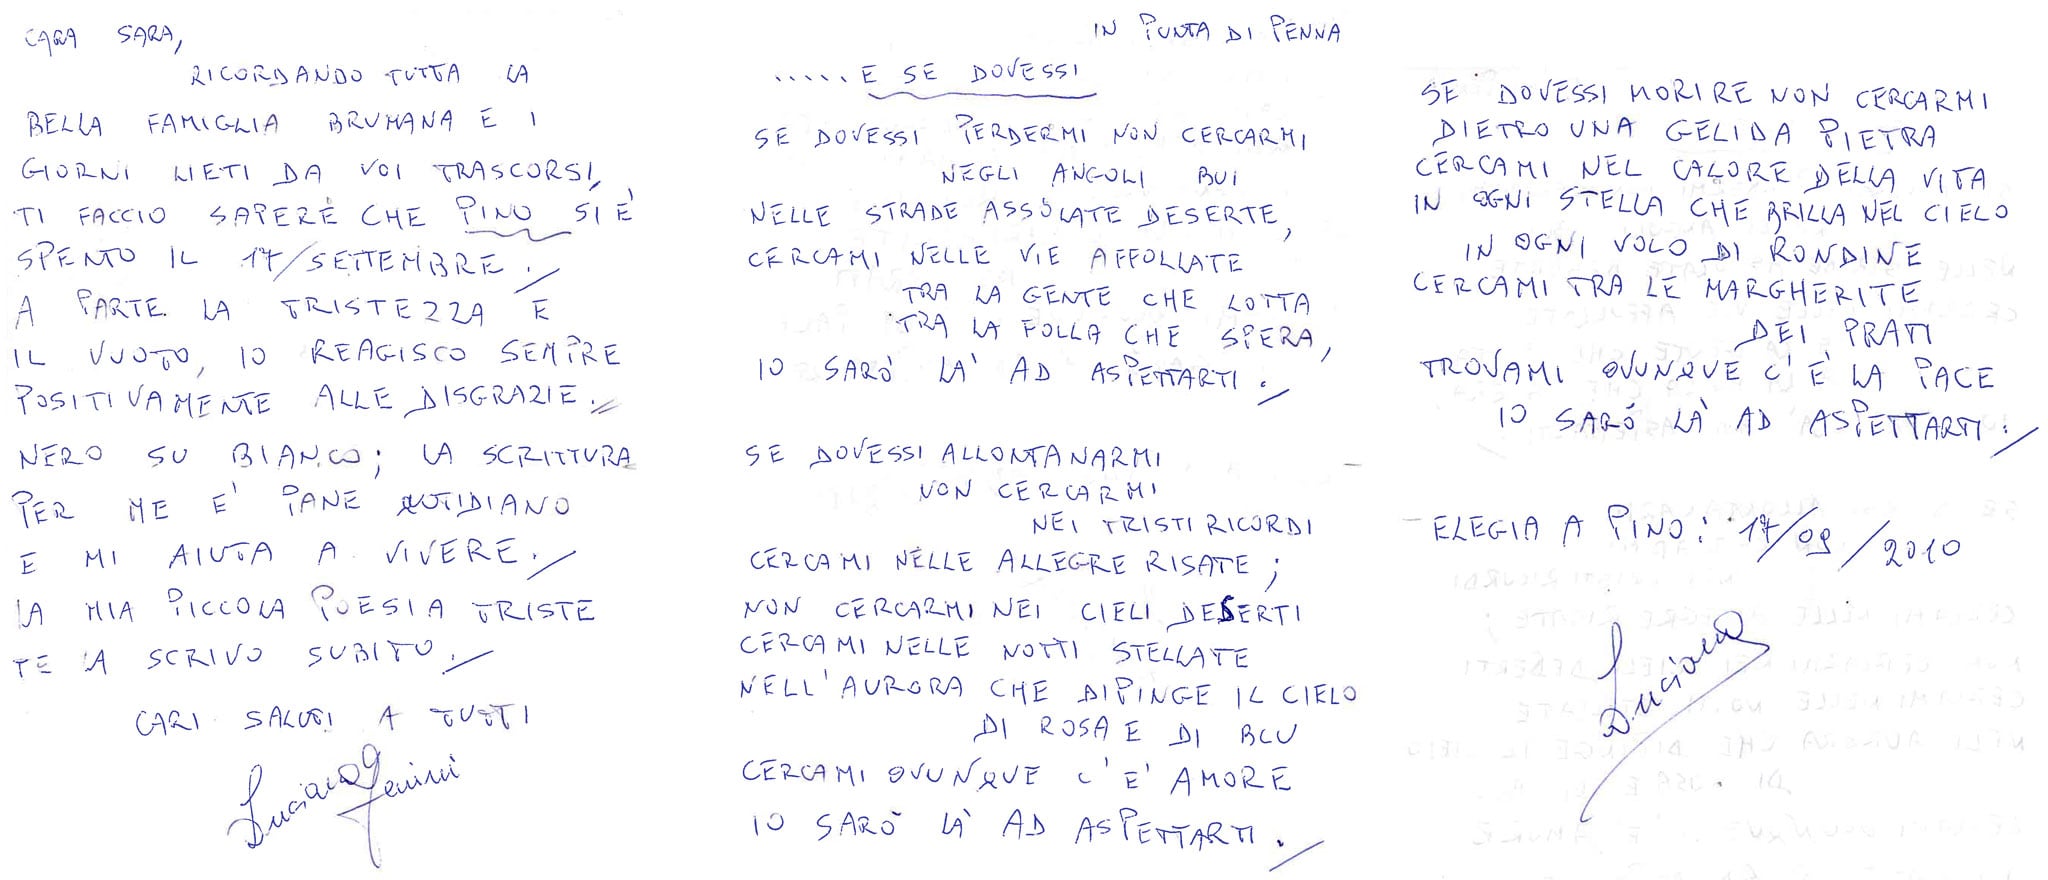 CARA SARA,
RICORDANDO TUTTA LA
BELLA FAMIGLIA BRUMANA E I
GIORNI LIETI DA VOI TRASCORSI,
TI FACCIO SAPERE CHE PINO SI È
SPENTO IL 17/SETTEMBRE./
A PARTE LA TRISTEZZA E
IL VUOTO, IO REAGISCO SEMPRE
POSITIVAMENTE ALLE DISGRAZIE.//
NERO SU BIANCO; LA SCRITTURA
PER ME E' PANE QUTIDIANO
E MI AIUTA A VIVERE./
LA MIA PICCOLA POESIA TRISTE
TE LA SCRIVO SUBITO./
CARI SALUTI A TUTTI
Luciana
IN PUNTA DI PENNA
.....E SE DOVESSI
SE DOVESSI PERDERMI NON CERCARMI
NEGLI ANGOLI BUI
NELLE STRADE ASSOLATE DESERTE,
CERCAMI NELLE VIE AFFOLLATE
TRA LA GENTE CHE LOTTA
TRA LA FOLLA CHE SPERA,
IO SARÒ LA' AD ASPETTARTI./
SE DOVESSI ALLONTANARMI
NON CERCARMI
NEI TRISTI RICORDI
CERCAMI NELLE ALLEGRE RISATE;
NON CERCARMI NEI CIELI DESERTI
CERCAMI NELLE NOTTI STELLATE
NELL'AURORA CHE DIPINGE IL CIELO
DI ROSA E DI BLU
CERCAMI OVUNQUE C'E' AMORE
IO SARÒ LA' AD ASPETTARTI./
SE DOVESSI MORIRE NON CERCARMI
DIETRO UNA GELIDA PIETRA
CERCAMI NEL CALORE DELLA VITA
IN OGNI STELLA CHE BRILLA NEL CIELO
IN OGNI VOLO DI RONDINE
CERCAMI TRA LE MARGHERITE
DEI PRATI
TROVAMI OVUNQUE C'E' LA PACE
IO SARÒ LA' AD ASPETTARTI./
ELEGIA A PINO: 17/09/2010
Luciana